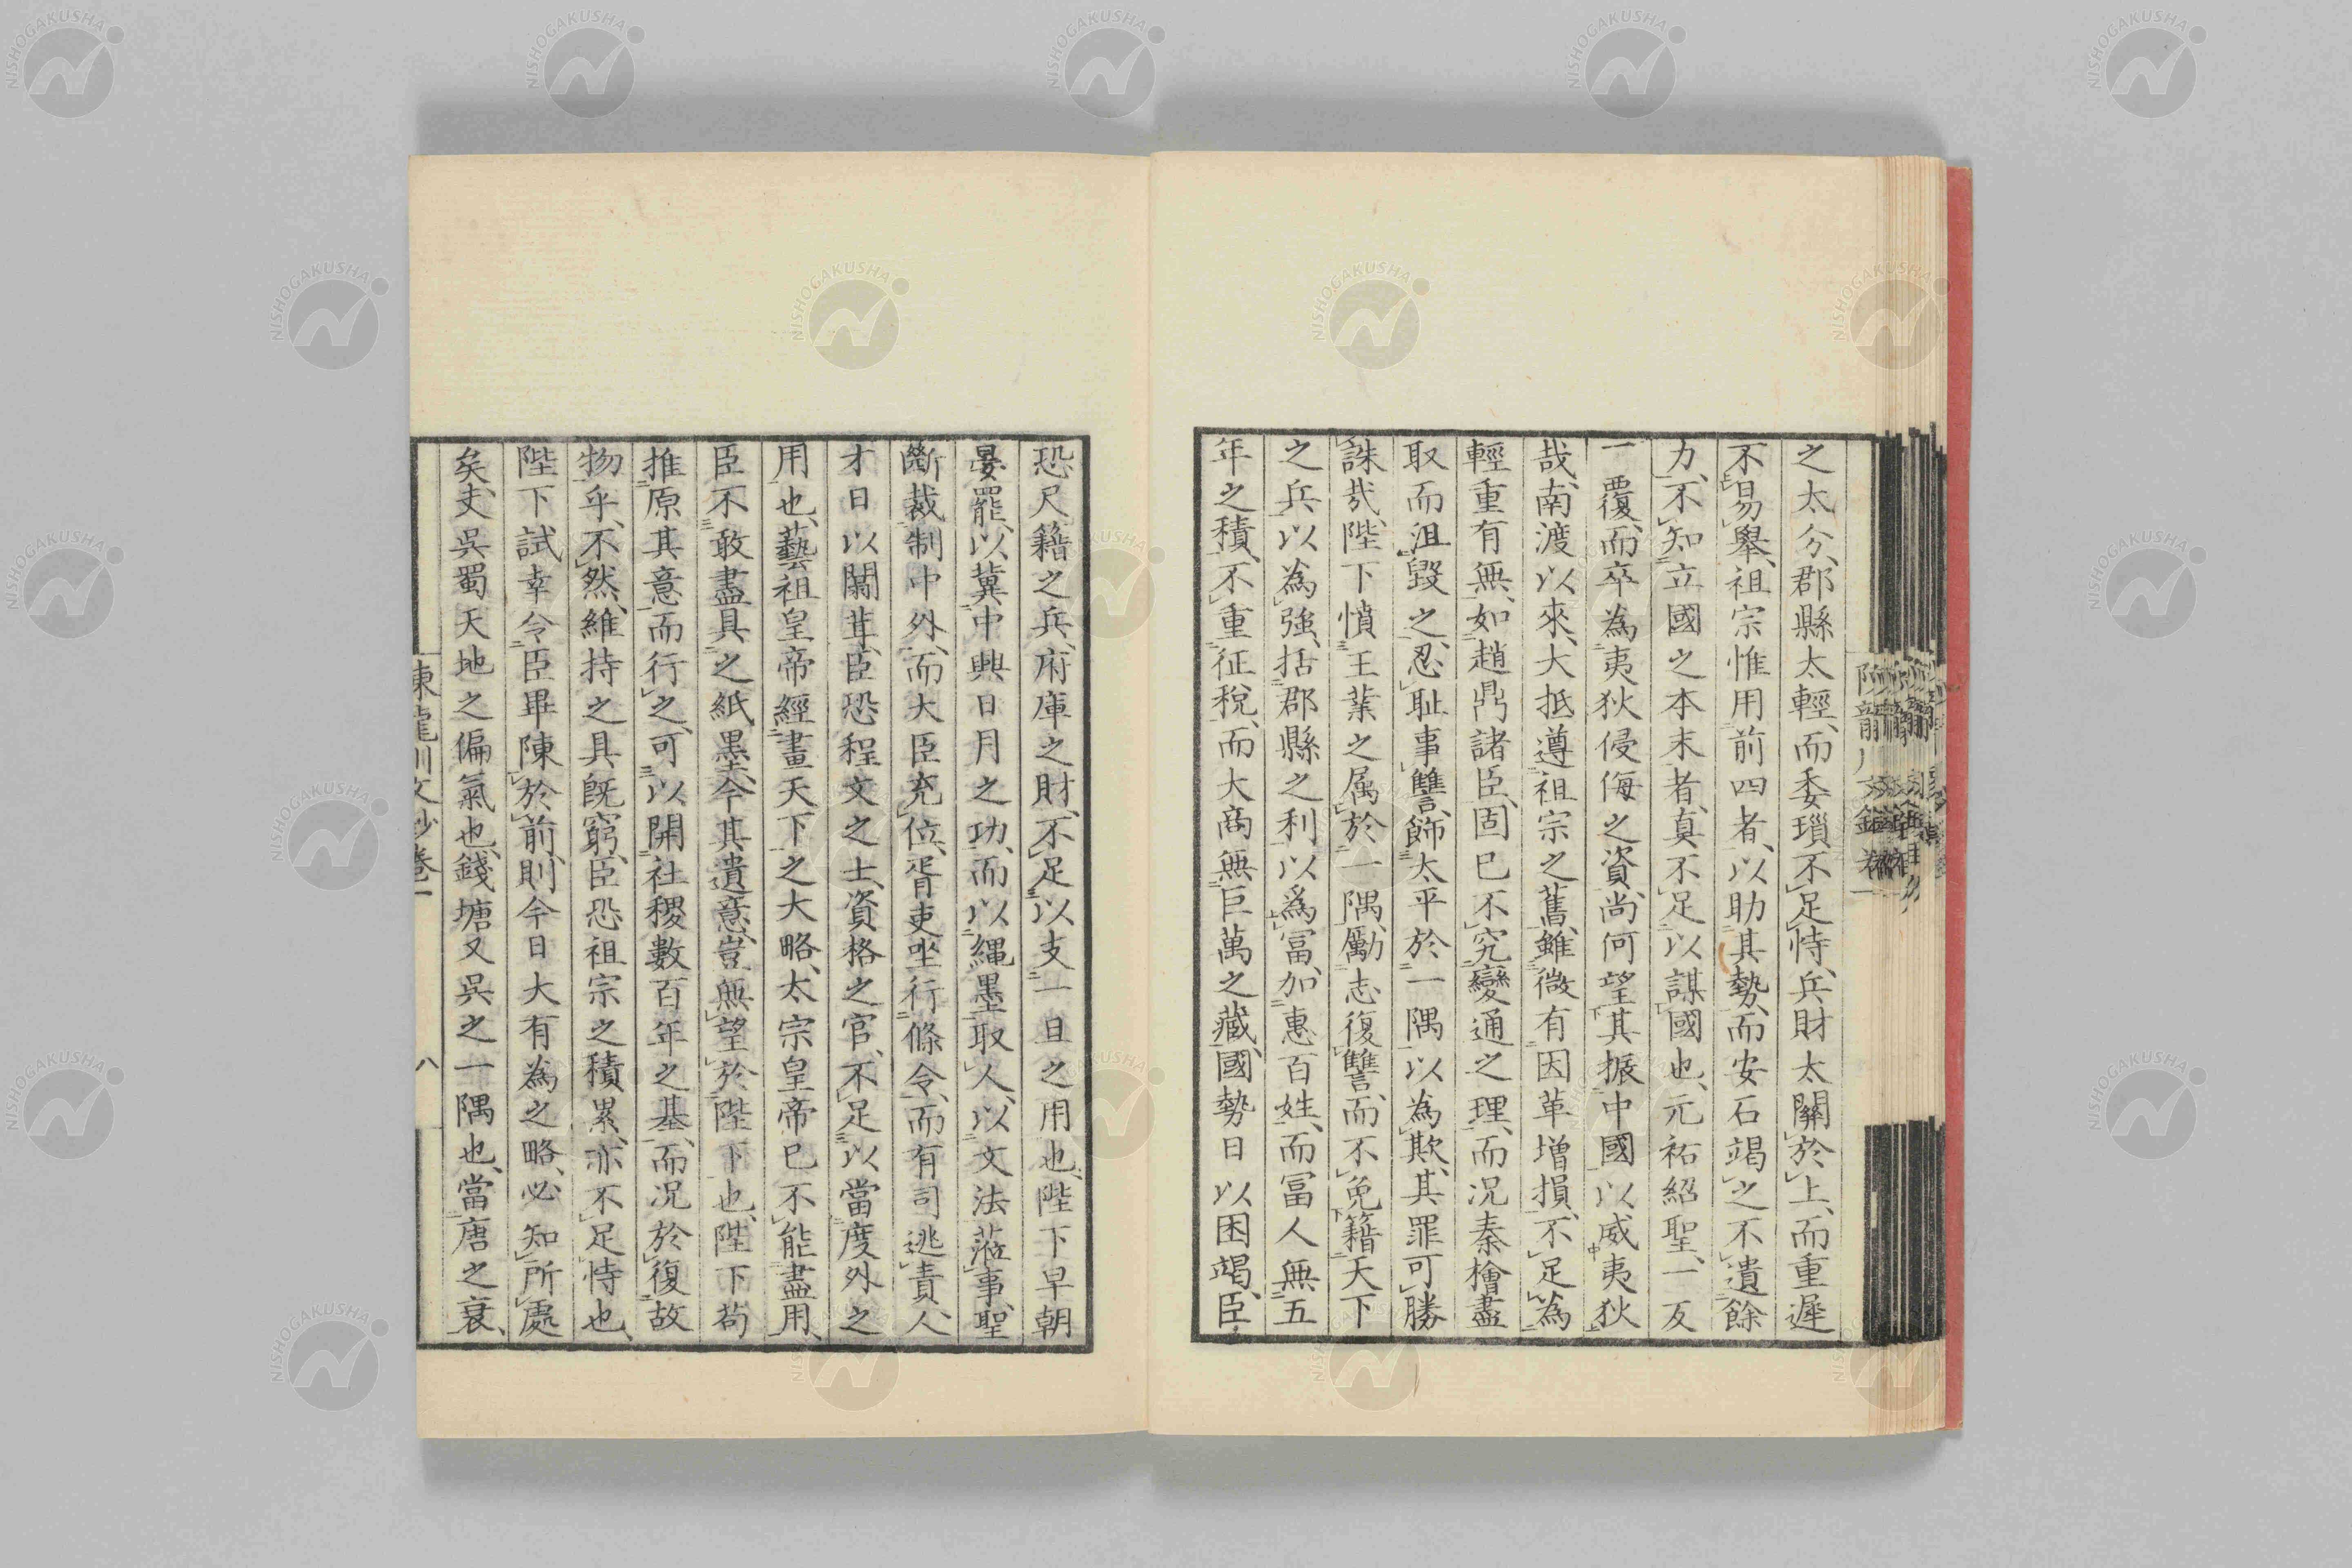 之太分、郡縣太輕、而委瑣不足恃、兵財太關於上、而重遲
不易舉、祖宗惟用前四者、以助其勢、而安石竭之不遺餘
力、不知立國之本末者、真不足以謀國也、元祐紹聖、一反
一覆、而卒為夷狄侵侮之資、尚何望其振中國以威夷狄
哉、南渡以來、大抵遵祖宗之舊、雖微有因革增損、不足為
輕重有無、如趙鼎諸臣、固已不究變通之理、而況秦檜盡
取而沮毀之、忍耻事讐、飾太平於一隅以為欺、其罪可勝
誅哉、陛下憤王業之属於一隅、勵志復讐、而不免籍天下
之兵以為強、括郡縣之利以爲冨、加惠百姓、而冨人無五
年之積、不重征稅、而大商無巨萬之藏、國勢日以困竭、臣
恐尺籍之兵、府庫之財、不足以支一旦之用也、陛下早朝
晏罷、以冀中興日月之功、而以繩墨取人、以文法蒞事、聖
斷裁制中外、而大臣充位、胥吏坐行條令、而有司逃責、人
才日以闒茸、臣恐程文之士、資格之官、不足以當度外之
用也、藝祖皇帝經畫天下之大略、太宗皇帝已不能盡用、
臣不敢盡具之紙墨、今其遺意、豈無望於陛下也、陛下苟
推原其意而行之、可以開社稷數百年之基、而況於復故
物乎、不然、維持之具既窮、臣恐祖宗之積累、亦不足恃也、
陛下試幸令臣畢陳於前、則今日大有為之略、必知所處
矣、夫吳蜀天地之偏氣也、錢塘又吳之一隅也、當唐之衰、
陳龍川文鈔卷一 八
NISHOGAKUSHA